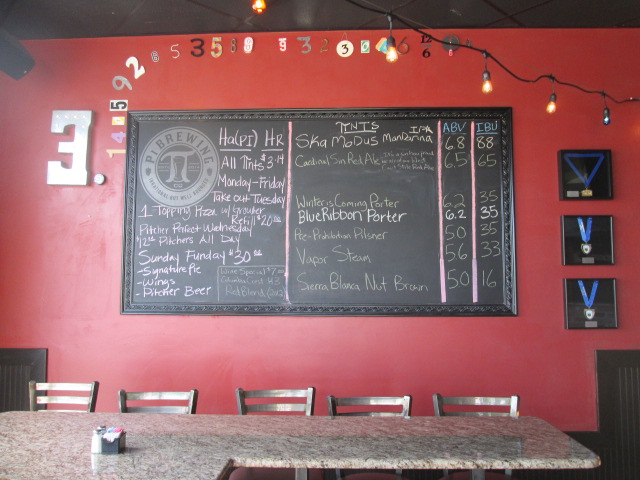 3.
9 2 5 3 5 8 9 3 2 3 5 4 6 12 6
5
4
1
PI BREWING
π
Ha(pi) Hr
All Pints $3.14
Monday-Friday
Take out Tuesday
1 Topping Pizza w/ Growler
Refill $20.00
Pitcher Perfect Wednesday
Pitchers All Day
Sunday Funday $30.00
-Signature Pie
-Wings
-Pitcher Beer
Wine Special
Red Blend
PINTS ABV IBU
Ska Modus Mandarina IPA 6.8 88
Cardinal Sin Red Ale 6.5 65
Winter is Coming Porter 6.2 35
Blue Ribbon Porter 6.2 35
Pre-Prohibition Pilsner 50 35
Vapor Steam 56 33
Sierra Blanca Nut Brown 50 16